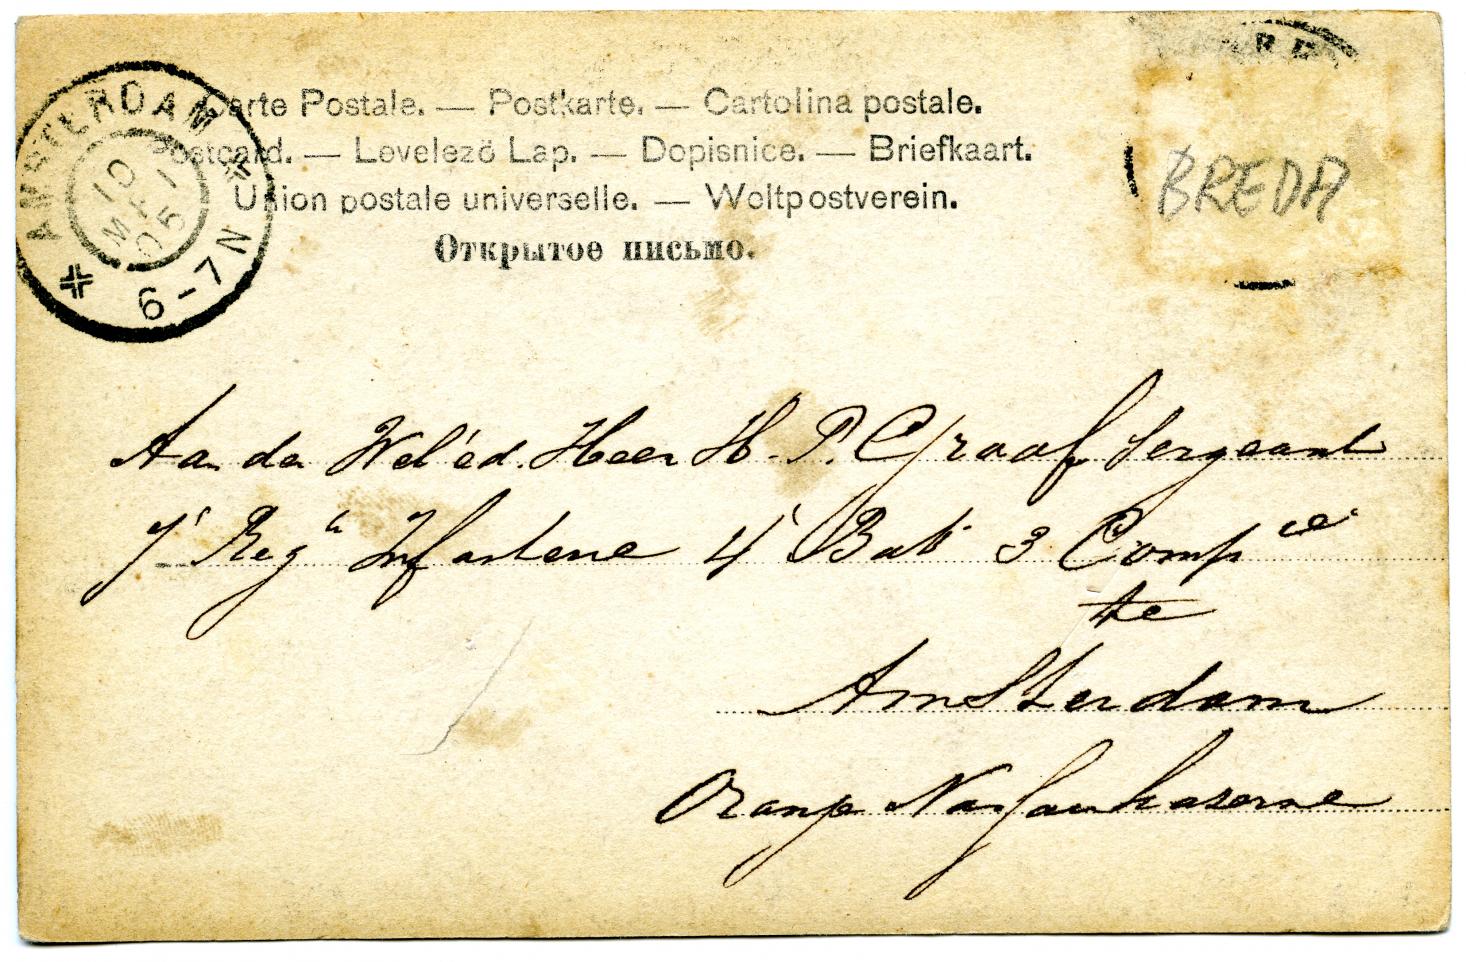 Carte Postale. — Postkarte. — Cartolina postale.
Postcard. — Levelező Lap. — Dopisnice. — Briefkaart.
Union postale universelle. — Weltpostverein.
Открытое письмо.
AMSTERDAM
10
MEI
05
6-7N
BREDA
Aan den Wel'ed. Heer H. P. Graaf Sergeant
7e Regt Infanterie 4e Bat 3 Compie
te
Amsterdam
Oranje Nassaukaserne